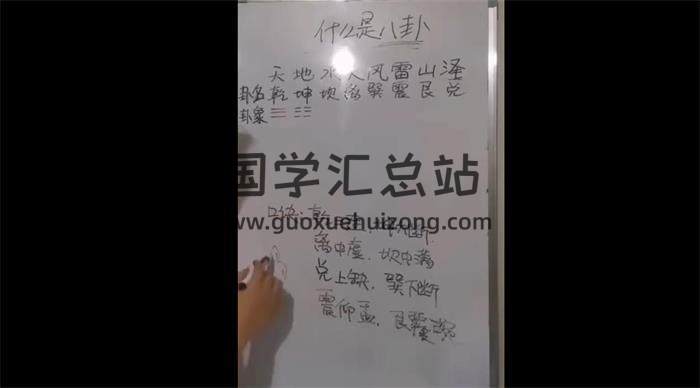 什么是八卦
天 地 水 火 风 雷 山 泽
卦名 乾 坤 坎 离 巽 震 艮 兑
卦象 ☰ ☷
国学汇总站
www.guoxuehuizong.com
口诀: 乾
离中虚, 坎中满
兑上缺, 巽下断
震仰盂, 艮覆